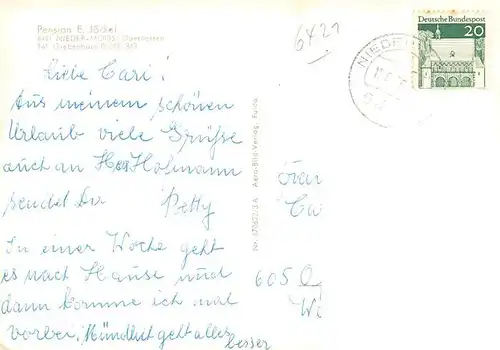 Pension E. Jöckel
6421 NIEDER-MOOS Oberhessen
Tel. Grebenhain
6421
Deutsche Bundespost
20
NIEDER
Liebe Cari!
Aus meinem schönen
Urlaub viele Grüße
auch an Hofmann
sendet Dir Betty
In einer Woche geht
es nach Hause und
dann komme ich mal
vorbei, Mündlich geht alles
besser
Aero-Bild-Verlag, Fulda
605 O